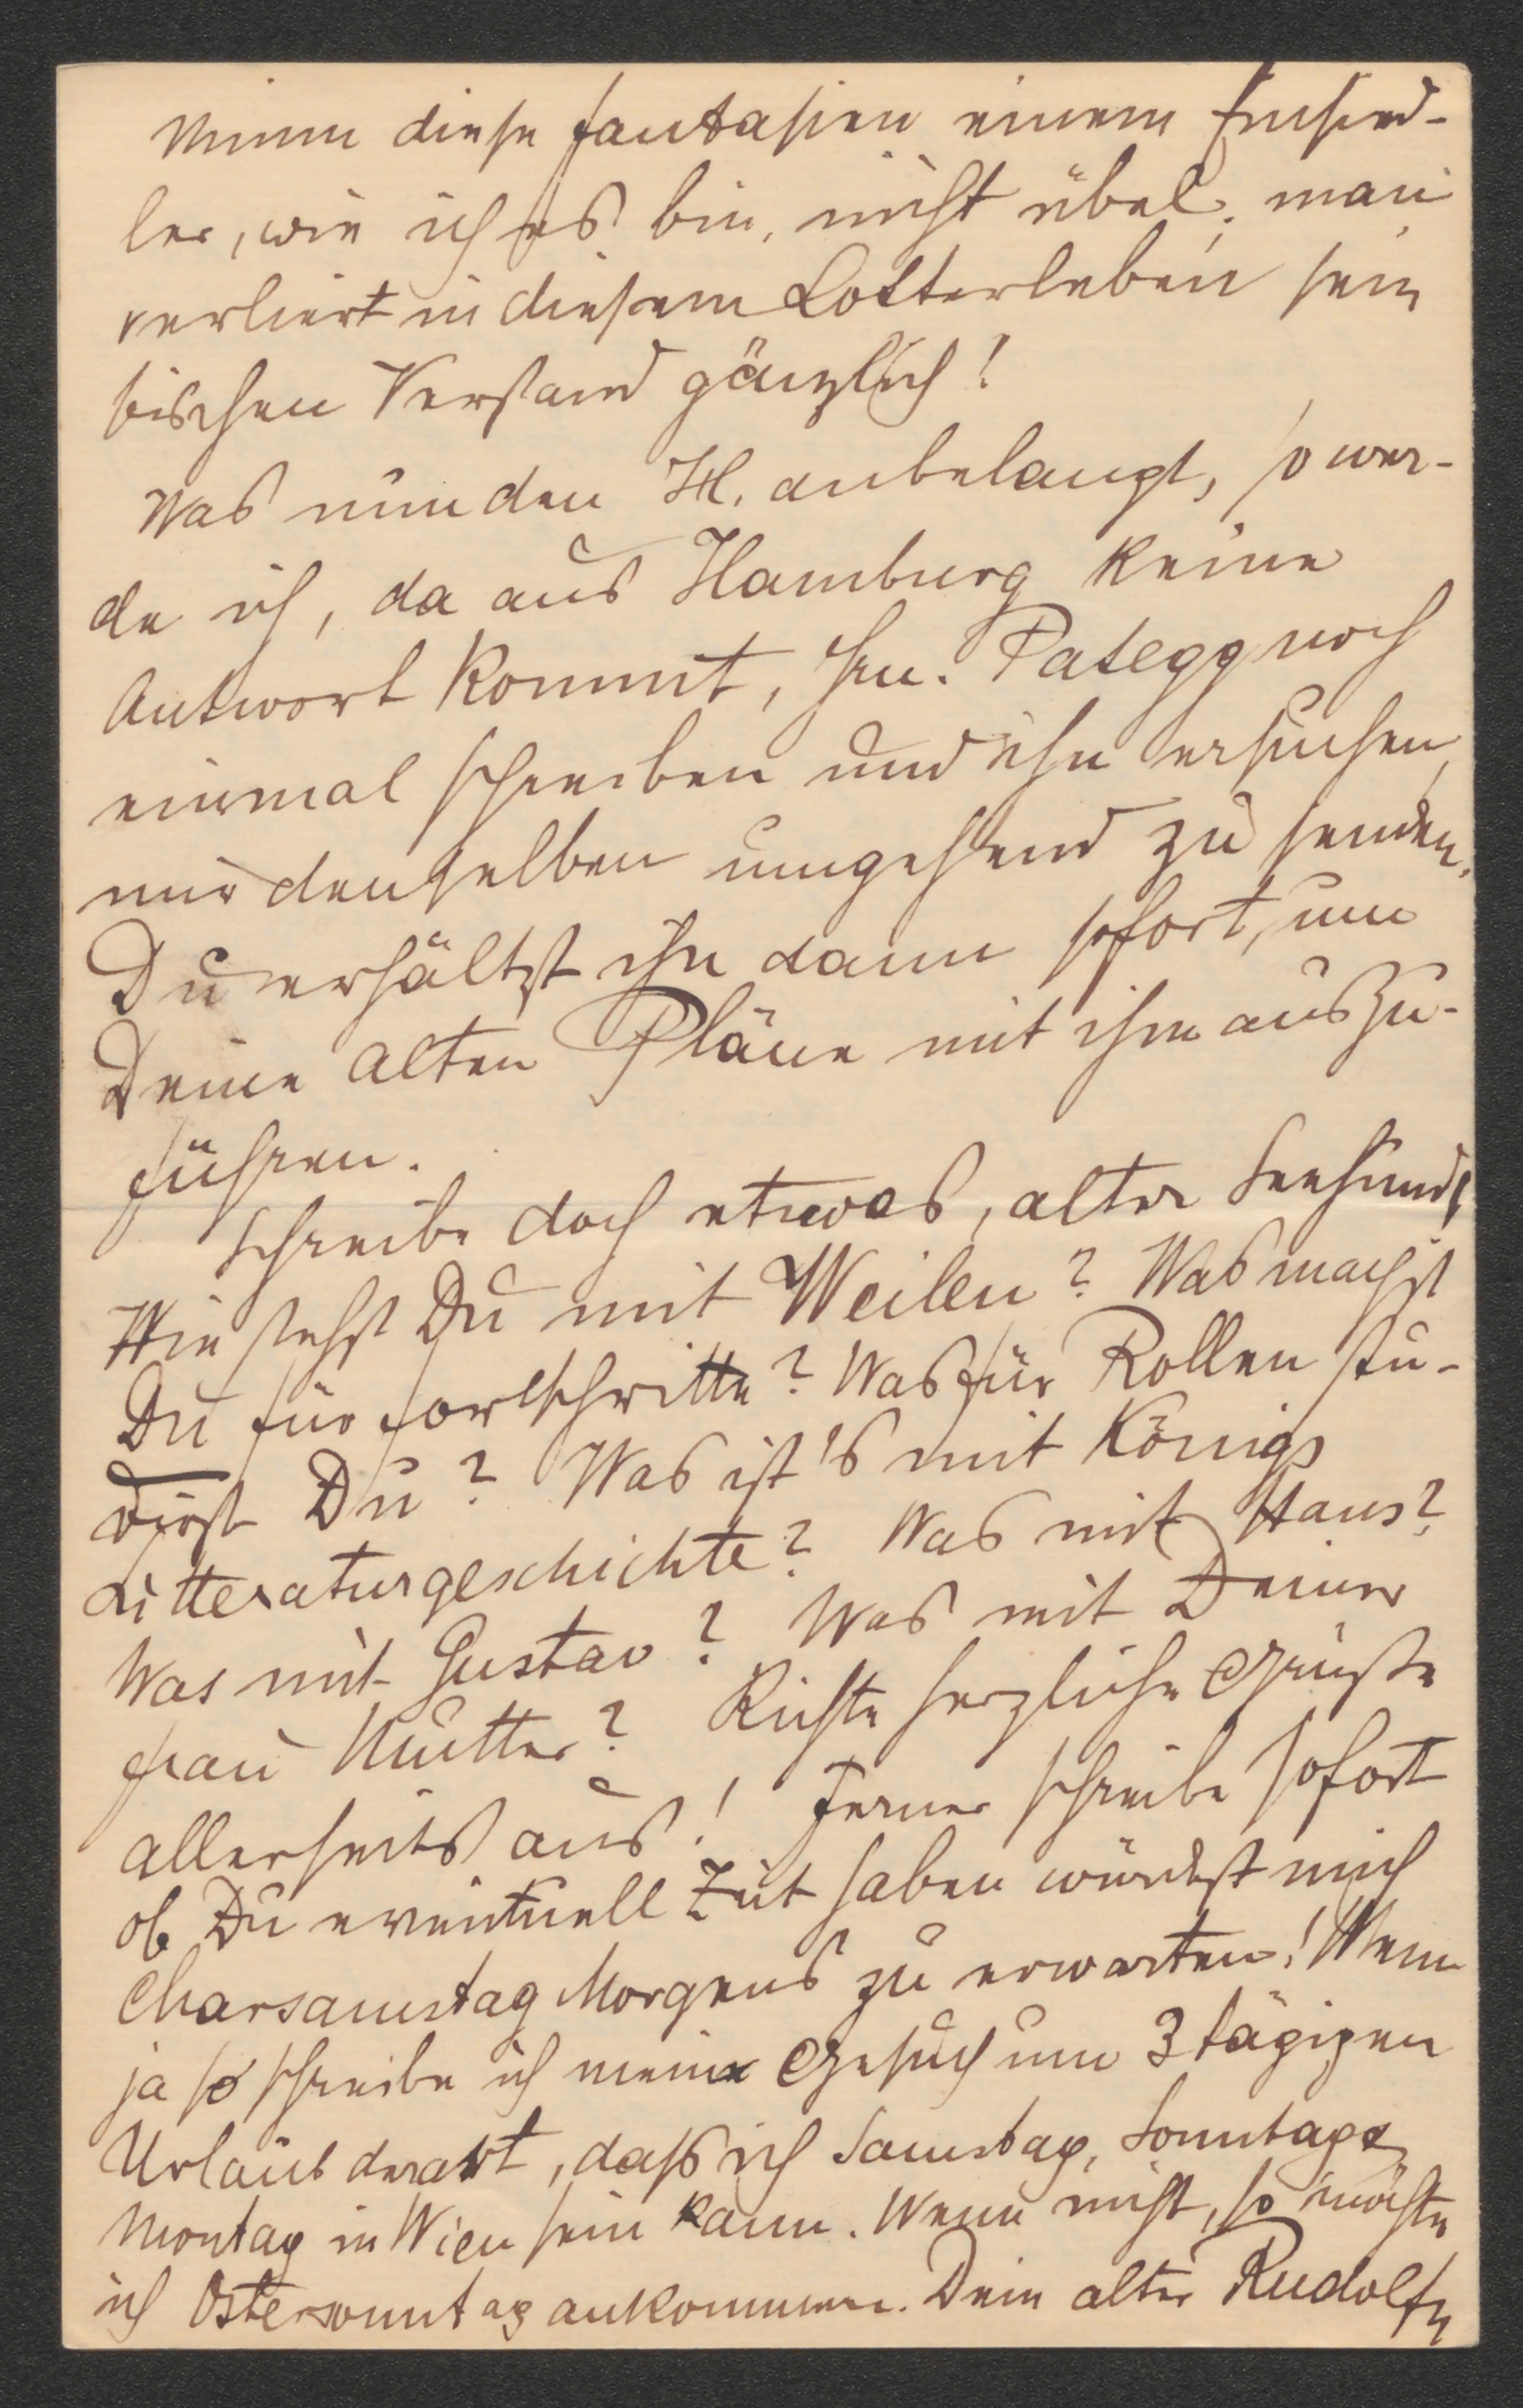 Nimm diese Fantasien einem Einsied-
ler, wie ich es bin, nicht übel; man
verliert in diesem Lotterleben sein
bischen Verstand gänzlich!
Was nun den H. anbelangt, so wer-
de ich, da aus Hamburg keine
Antwort kommt, Hrn. Pategg noch
einmal schreiben und ihn ersuchen,
mir denselben umgehend zu senden.
Du erhältst ihn dann sofort, um
Deine alten Pläne mit ihm auszu-
führen.
Schreibe doch etwas, alter Seehund!
Wie stehst Du mit Weilen? Was machst
Du für Fortschritte? Was für Rollen stu-
dirst Du? Was ist's mit Königs
Litteraturgeschichte? Was mit Hans?
Was mit Gustav? Was mit Deiner
Frau Mutter? Richte herzliche Grüße
allerseits aus! Ferner schreibe sofort
ob Du eventuell Zeit haben würdest mich
Charsamstag Morgens zu erwarten! Wenn
ja so schreibe ich mein Gesuch um 3 tägigen
Urlaub derart, daß ich Samstag, Sonntag
Montag in Wien sein kann. Wenn nicht, so möchte
ich Ostersonntag ankommen. Dein alter Rudolf